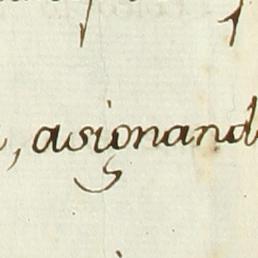 , asignand